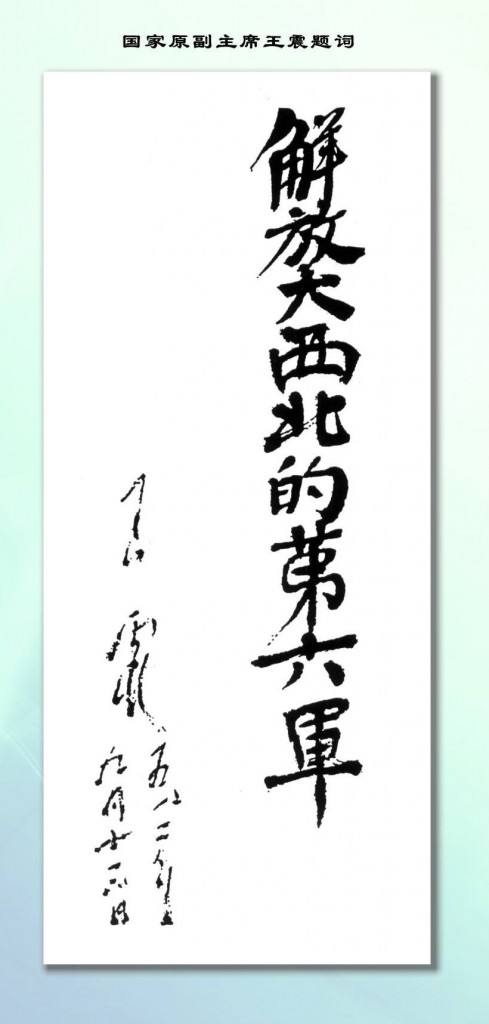 国家原副主席王震题词
解放大西北的第六軍
王震